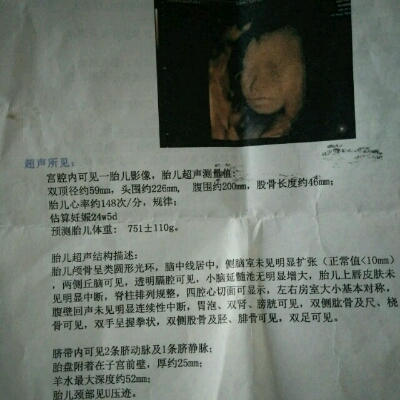 超声所见:
宫腔内可见一胎儿影像，胎儿超声测量值:
双顶径约59mm，头围约226mm， 腹围约200mm，股骨长度约46mm;
胎儿心率约148次/分，规律;
估算妊娠24w5d
预测胎儿体重: 751±110g。
胎儿超声结构描述:
胎儿颅骨呈类圆形光环，脑中线居中，侧脑室未见明显扩张（正常值<10mm）
，两侧丘脑可见，透明隔腔可见，小脑延髓池无明显增大，胎儿上唇皮肤未
见明显中断，脊柱排列规整，四腔心切面可显示，左右房室大小基本对称，
腹壁回声未见明显连续性中断，胃泡、双肾、膀胱可见，双侧肱骨及尺、桡
骨可见，双手呈握拳状，双侧股骨及胫、腓骨可见，双足可见。
脐带内可见2条脐动脉及1条脐静脉;
胎盘附着在子宫前壁，厚约25mm;
羊水最大深度约52mm;
胎儿颈部见U压迹。